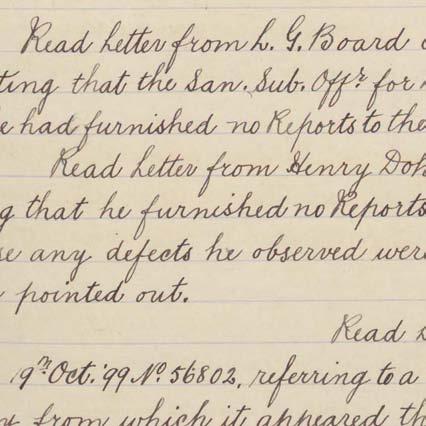 Read Letter from L. G. Board
ting that the San. Sub. Offr. for
he had furnished no Reports to the
Read Letter from Henry Doh
g that he furnished no Reports
se any defects he observed were
pointed out.
Read
9th Oct. '99 No. 56802, referring to a
from which it appeared th